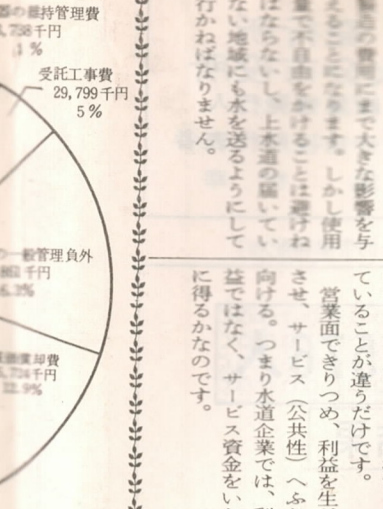 維持管理費
千円
1%
受託工事費
29,799千円
5%
一般管理負外
千円
償却費
千円
12.9%
の費用にまで大きな影響を与
えることになります。しかし使用
量で不自由をかけることは避けね
ばならないし、上水道の届いてい
ない地域にも水を送るようにして
行かねばなりません。
ていることが違うだけです。
営業面できりつめ、利益を生
させ、サービス（公共性）へふ
向ける。つまり水道企業では、
益ではなく、サービス資金をい
に得るかなのです。